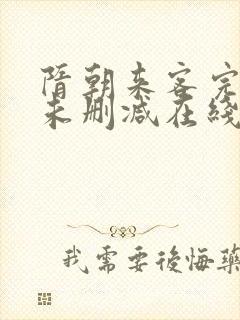 隋朝来客完
未删减在綫
我需要後悔藥